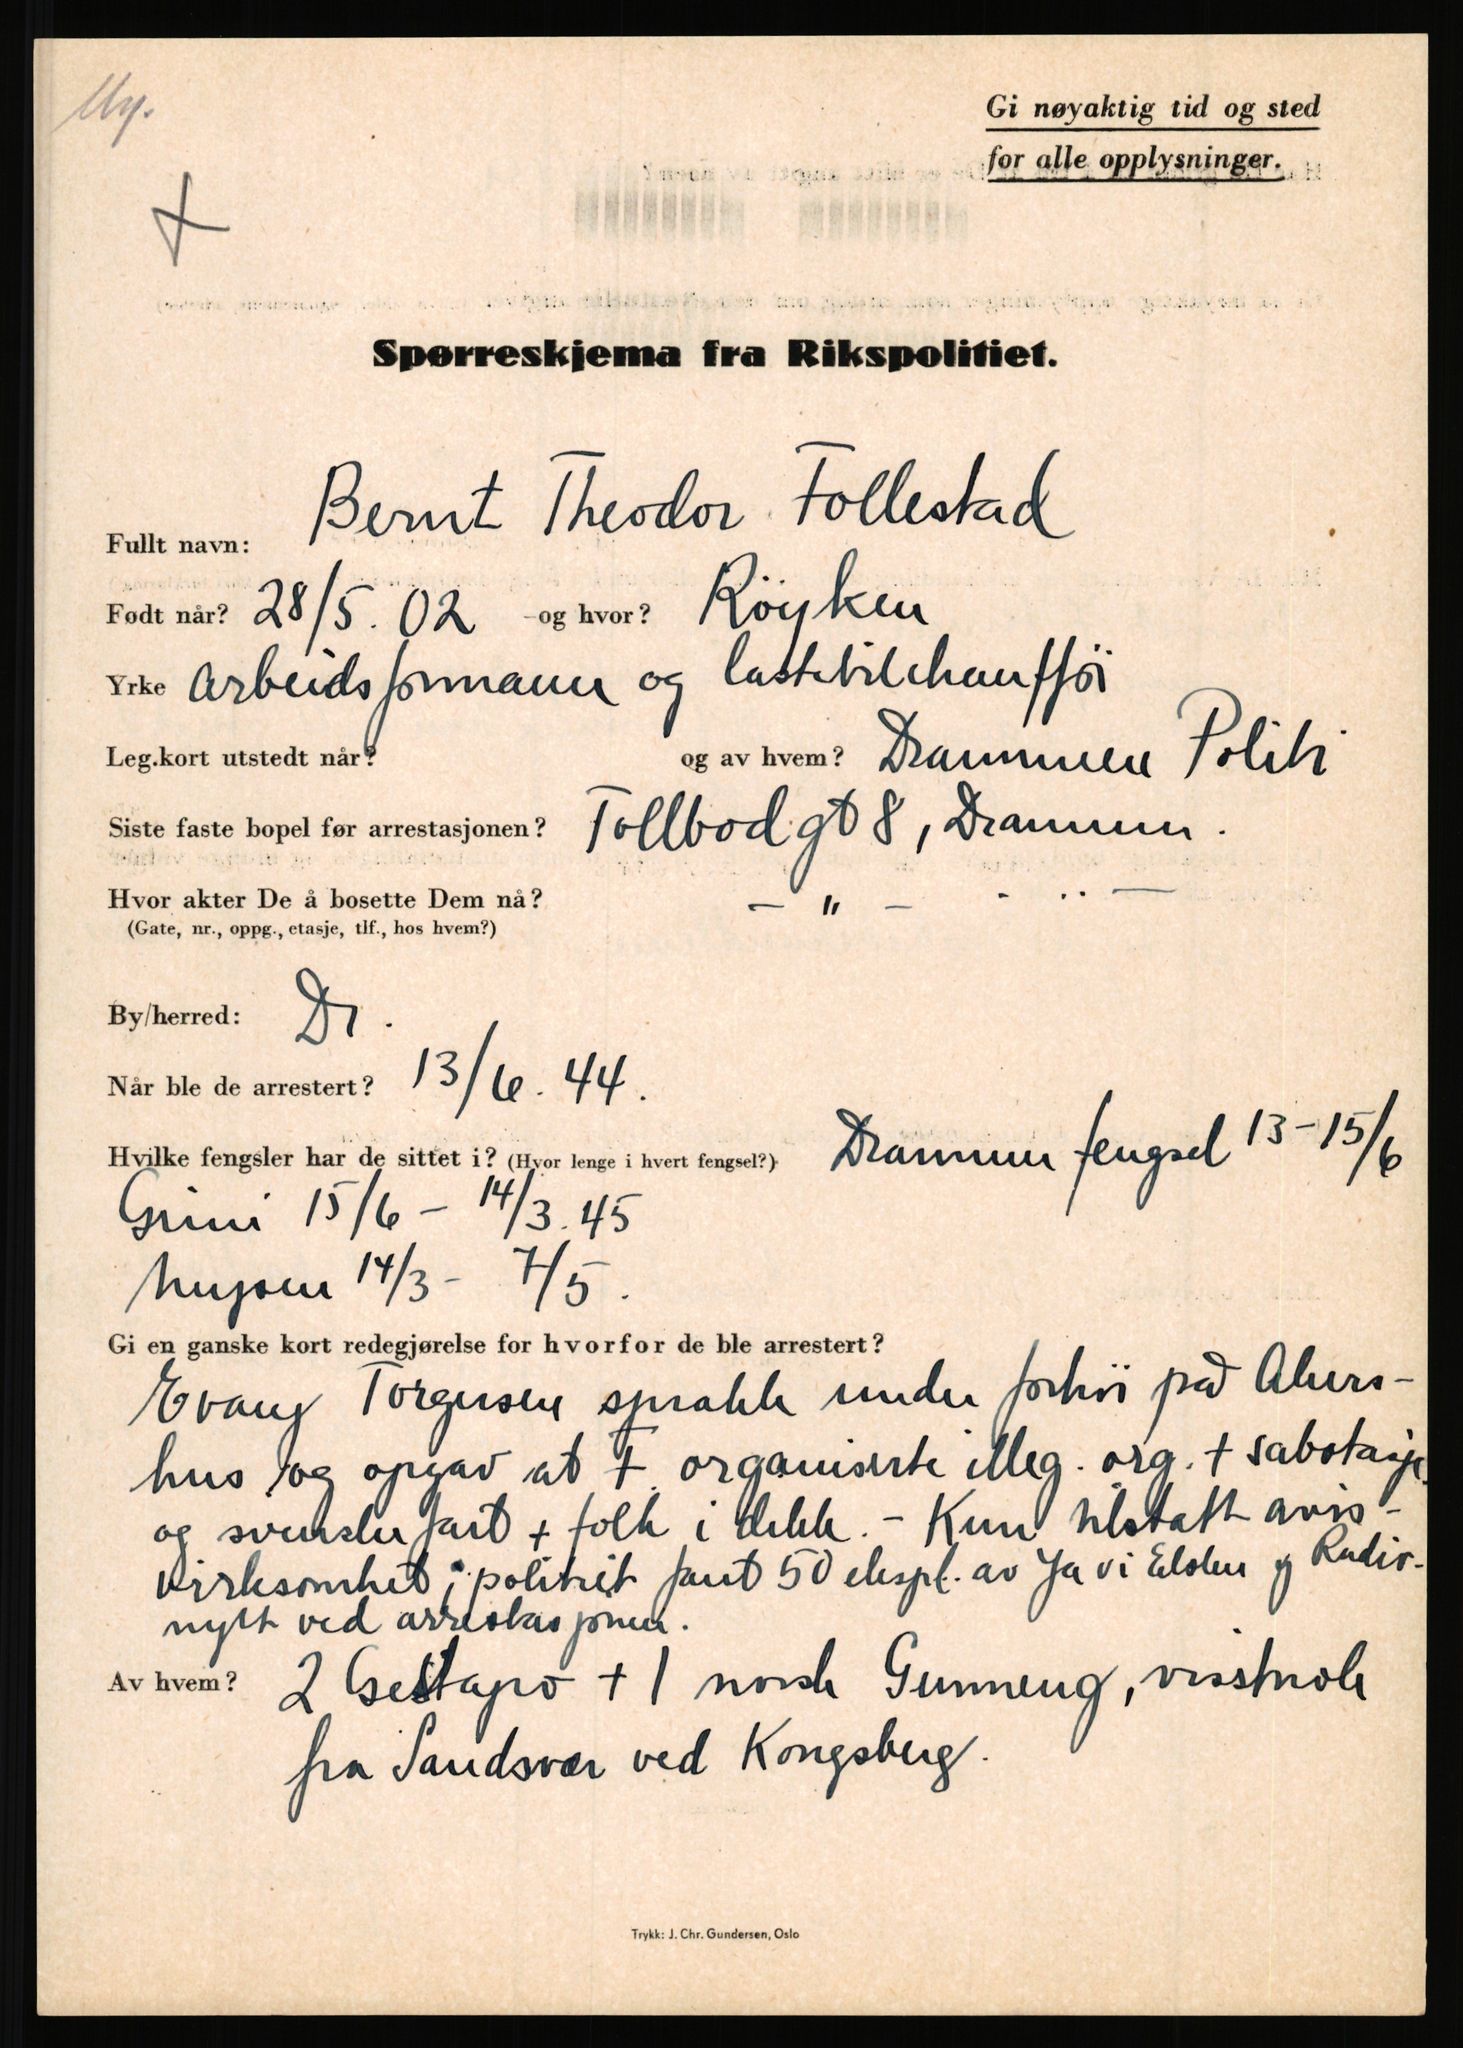 My.
Gi nøyaktig tid og sted
for alle opplysninger.
Spørreskjema fra Rikspolitiet.
Fullt navn: Bernt Theodor Follestad
Født når? 28/5. 02 og hvor? Röyken
Yrke arbeidsformann og lastebilchaufför
Leg.kort utstedt når? og av hvem? Drammen Politi
Siste faste bopel før arrestasjonen? Tollbodgt 8, Drammen.
Hvor akter De å bosette Dem nå? — " — - .. —
(Gate, nr., oppg., etasje, tlf., hos hvem?)
By/herred: Dr.
Når ble de arrestert? 13/6. 44.
Hvilke fengsler har de sittet i? (Hvor lenge i hvert fengsel?) Drammen fengsel 13-15/6
Grini 15/6 - 14/3. 45
Mysen 14/3 - 7/5.
Gi en ganske kort redegjørelse for hvorfor de ble arrestert?
Evang Torgersen sprakk under forhör på Akers-
hus og opgav at F. organiserte illeg. org. + sabotasje
og svensker fart + folk i dekk. - Kun tilstått avis-
virksomhet; politiet fant 50 ekspl. av Ja vi Elsker og Radio-
nytt ved arrestasjonen.
Av hvem? 2 Gestapo + 1 norsk Gunneng, visstnok
fra Sandsvær ved Kongsberg.
Trykk: J. Chr. Gundersen, Oslo